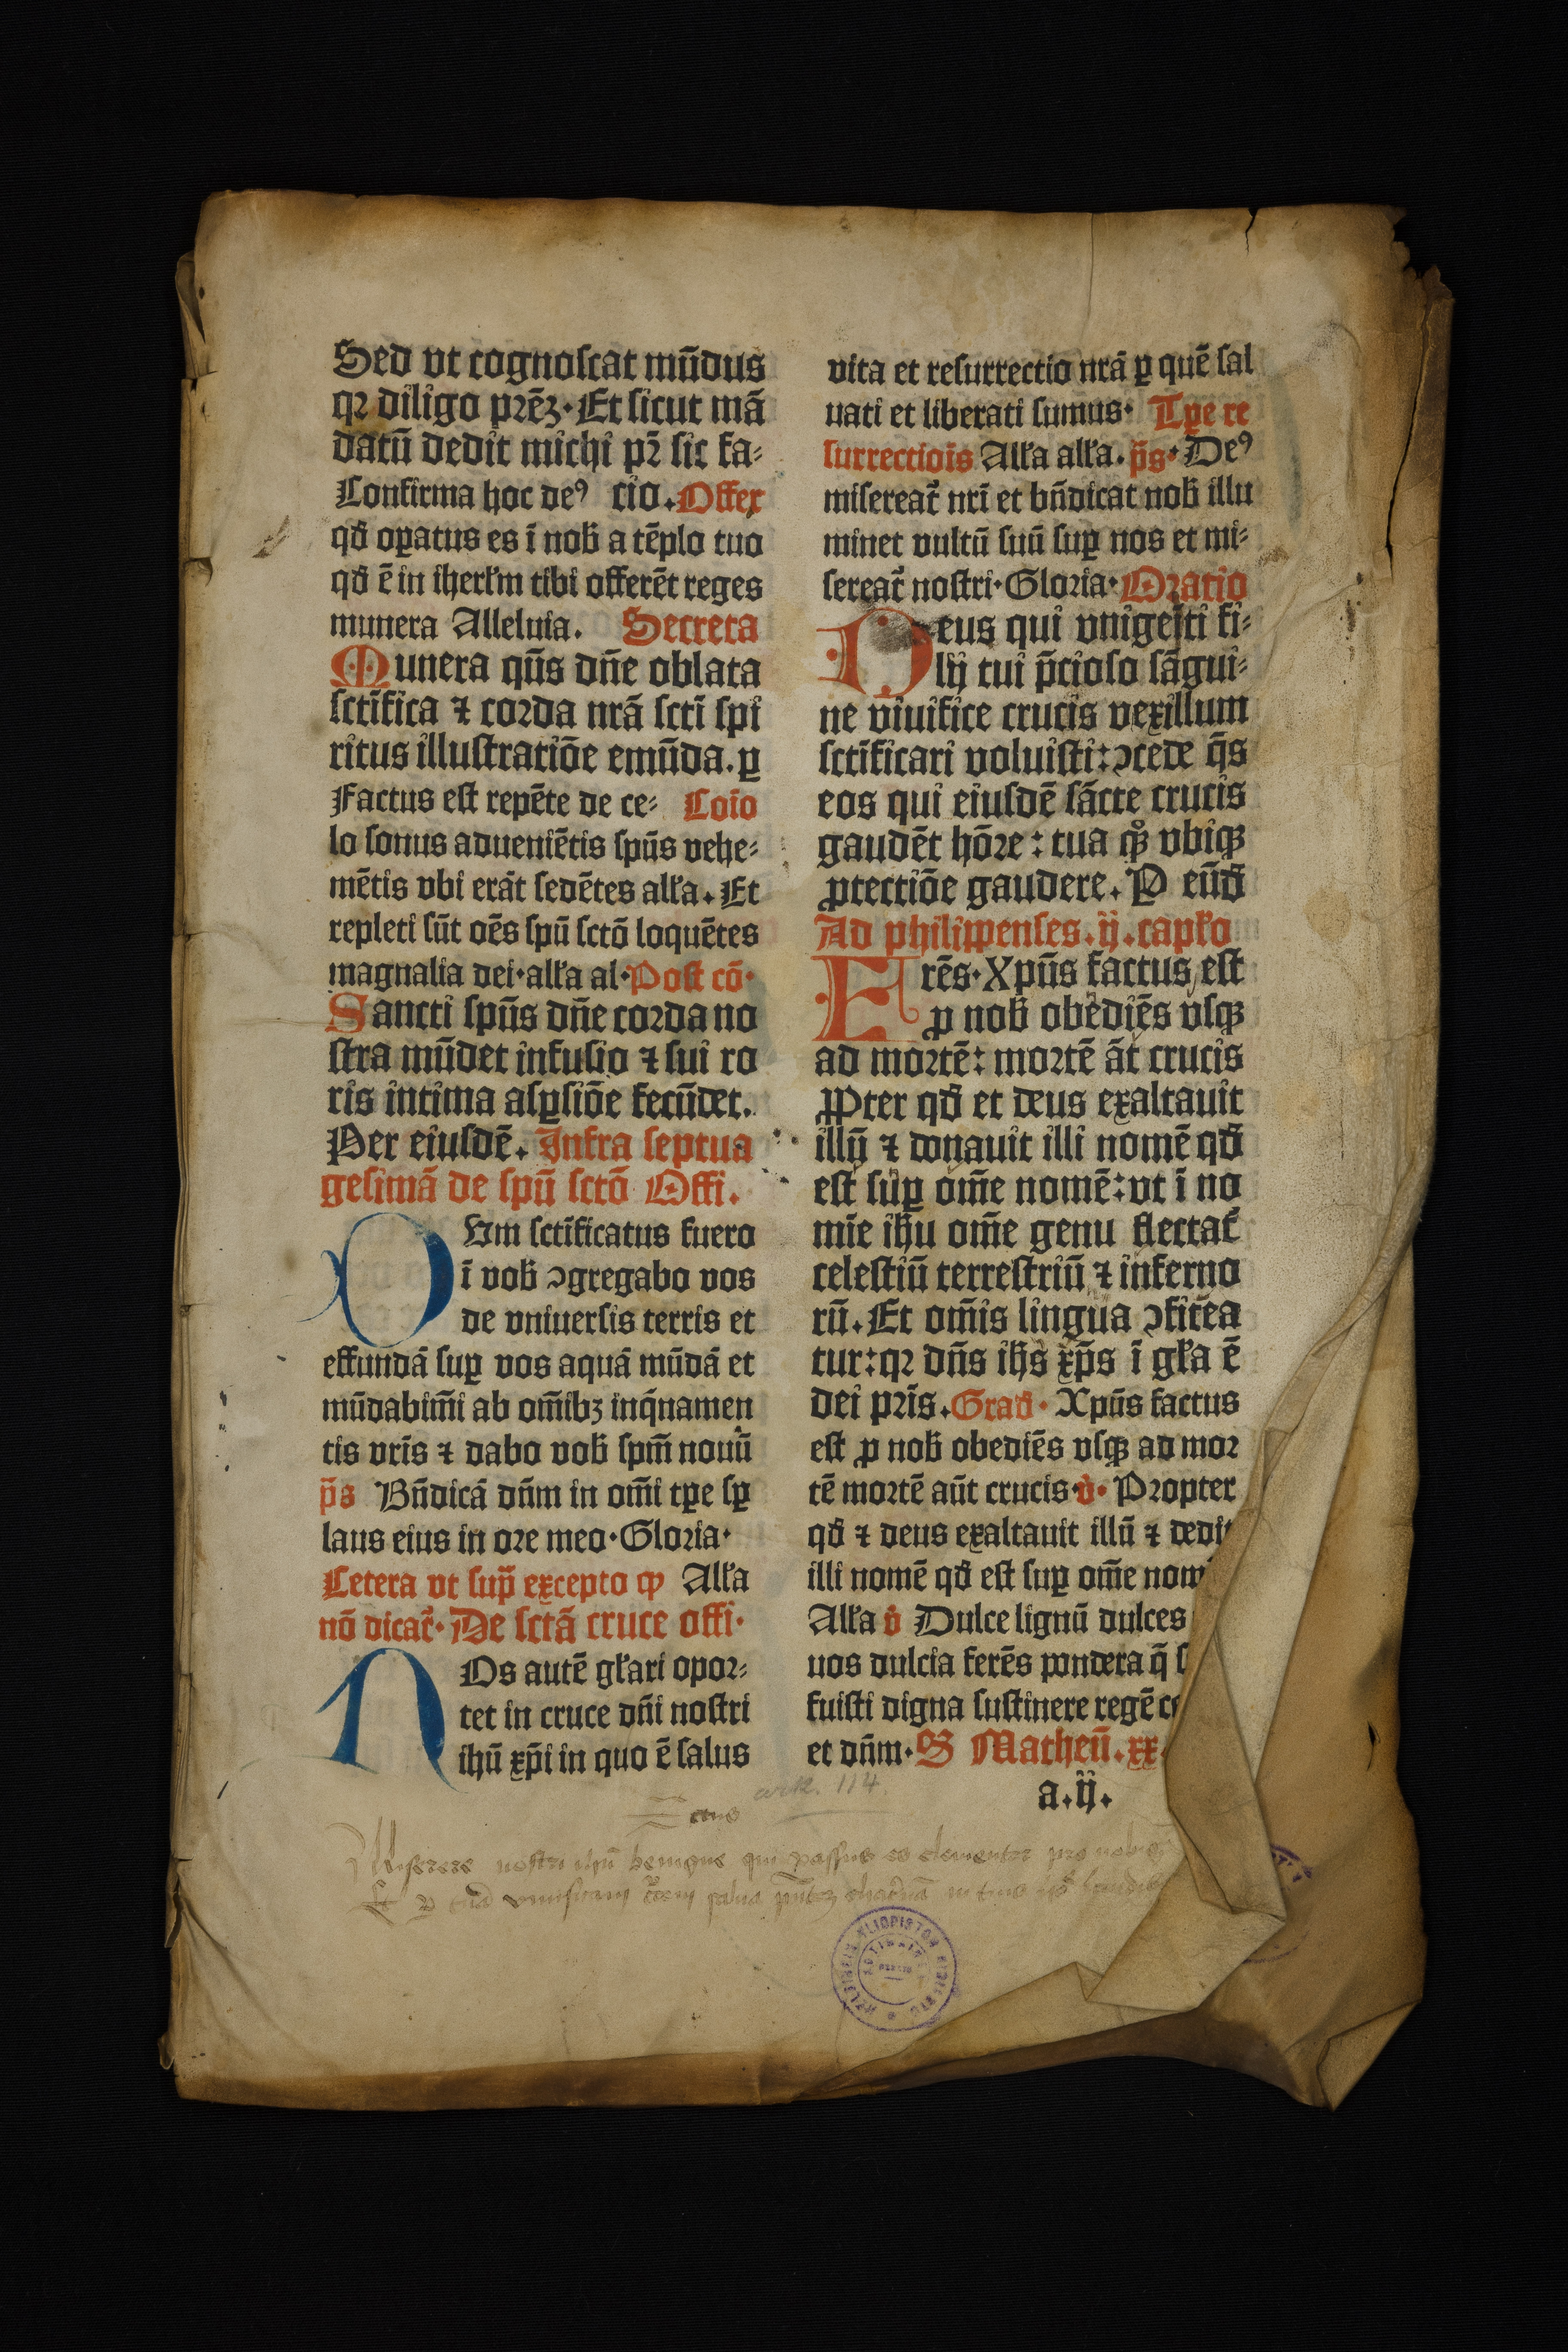 Sed vt cognoscat mūdus
qꝛ diligo prēꝫ·Et sicut mā
datū dedit michi pr̄ sic fa⸗
Confirma hoc deꝰ cio.Offer
qđ oꝑatus es ī nob̄ a tēplo tuo
qđ ē in iherl̄m tibi offerēt reges
munera Alleluia. Secreta
Munera qūs dn̄e oblata
sctīfica ⁊ corda nrā sctī spi
ritus illustratiōe emūda.ꝑ
Factus est repēte de ce⸗ Coīo
lo sonus adueniētis spūs vehe⸗
mētis vbi erāt sedētes all̄a.Et
repleti sūt oēs spū sctō loquētes
magnalia dei·all̄a al·Post cō·
Sancti spūs dn̄e corda no
stra mūdet infusio ⁊ sui ro
ris intima asꝑsiōe fecūdet.
Per eiusdē. Infra septua
gesimā de spū sctō Offi.
CVm sctīficatus fuero
ī vob̄ ↄgregabo vos
de vniuersis terris et
effundā suꝑ vos aquā mūdā et
mūdabim̄i ab om̄ibꝫ inq̄namen
tis vrīs ⁊ dabo vob̄ spm̄ nouū
p̄s Bn̄dicā dn̄m in om̄i tꝑe sꝑ
laus eius in ore meo·Gloria·
Cetera vt sup̄ excepto ꝙ All̄a
nō dicat̄·De sctā cruce offi·
NOs autē gl̄ari opor⸗
tet in cruce dn̄i nostri
ihū xp̄i in quo ē salus
vita et resurrectio nrā ꝑ quē sal
uati et liberati sumus· Tꝑe re
surrectiōis All̄a all̄a.p̄s·Deꝰ
misereat̄ nrī et bn̄dicat nob̄ illu
minet vultū suū suꝑ nos et mi⸗
sereat̄ nostri·Gloria·Oratio
Deus qui vnigeīti fi⸗
lij tui p̄cioso sāgui⸗
ne viuifice crucis vexillum
sctīficari voluisti:ↄcede q̄s
eos qui eiusdē sācte crucis
gaudēt hōre: tua qͦꝫ vbiqꝫ
ꝓtectiōe gaudere. P eūđ
Ad philippenses.ij.capl̄o
Frēs·Xpūs factus est
ꝓ nob̄ obediēs vsqꝫ
ad mortē: mortē āt crucis
Ꝓpter qđ et deus exaltauit
illū ⁊ donauit illi nomē qđ
est suꝑ om̄e nomē:vt ī no
mīe ihū om̄e genu flectat̄
celestiū terrestriū ⁊ inferno
rū.Et om̄is lingua ↄfitea
tur:qꝛ dn̄s ihs̄ xp̄s ī gl̄a ē
dei prīs.Grad̄· Xpūs factus
est ꝓ nob̄ obediēs vsqꝫ ad mor
tē mortē aūt crucis·v̄· Propter
qđ ⁊ deus exaltauit illū ⁊ dedit
illi nomē qđ est suꝑ om̄e nom
All̄a v̄ Dulce lignū dulces
uos dulcia ferēs pondera q̄ s
fuisti digna sustinere regē ce
et dn̄m·S Matheū.xx
a.ij.
ark. 114.
ctus
Miserere nostri ihū benigne qui passus es clementer pro nobis